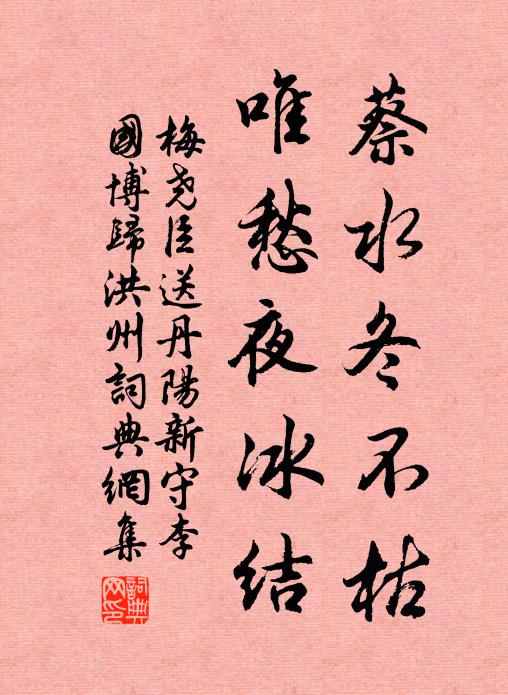 蔡水冬不枯
唯愁夜冰结
梅尧臣送丹陽新守李
國博歸洪州詞典網集
詞典
网印